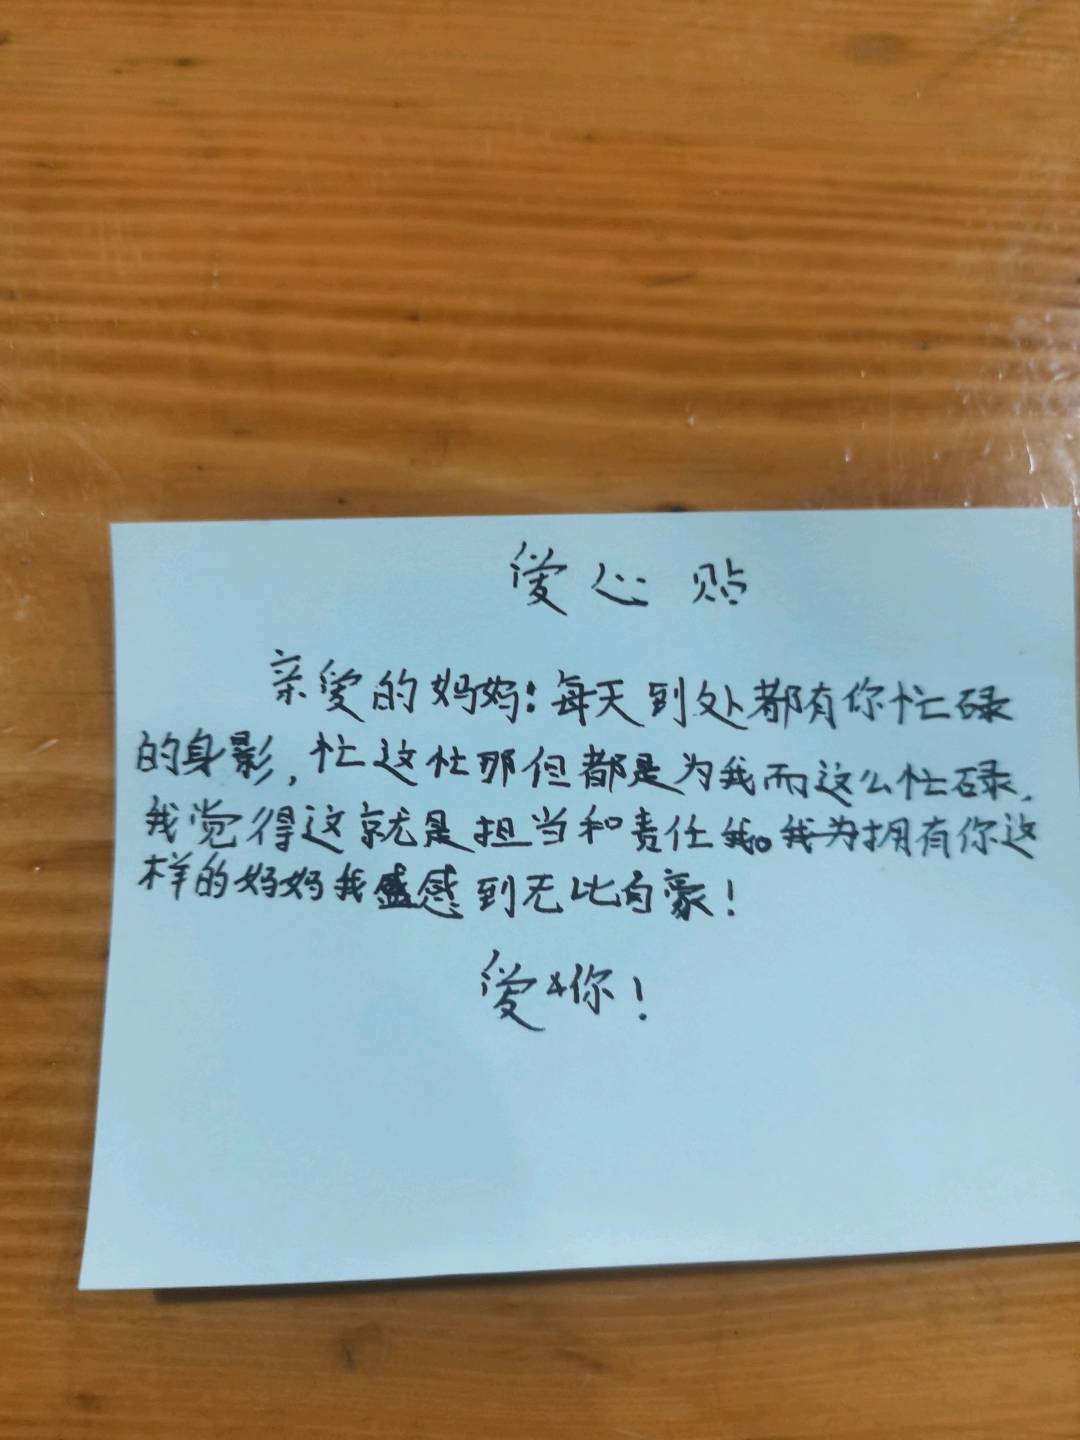 爱心贴
亲爱的妈妈：每天到处都有你忙碌
的身影，忙这忙那但都是为我而这么忙碌，
我觉得这就是担当和责任我。我为拥有你这
样的妈妈我感到无比自豪！
爱你！